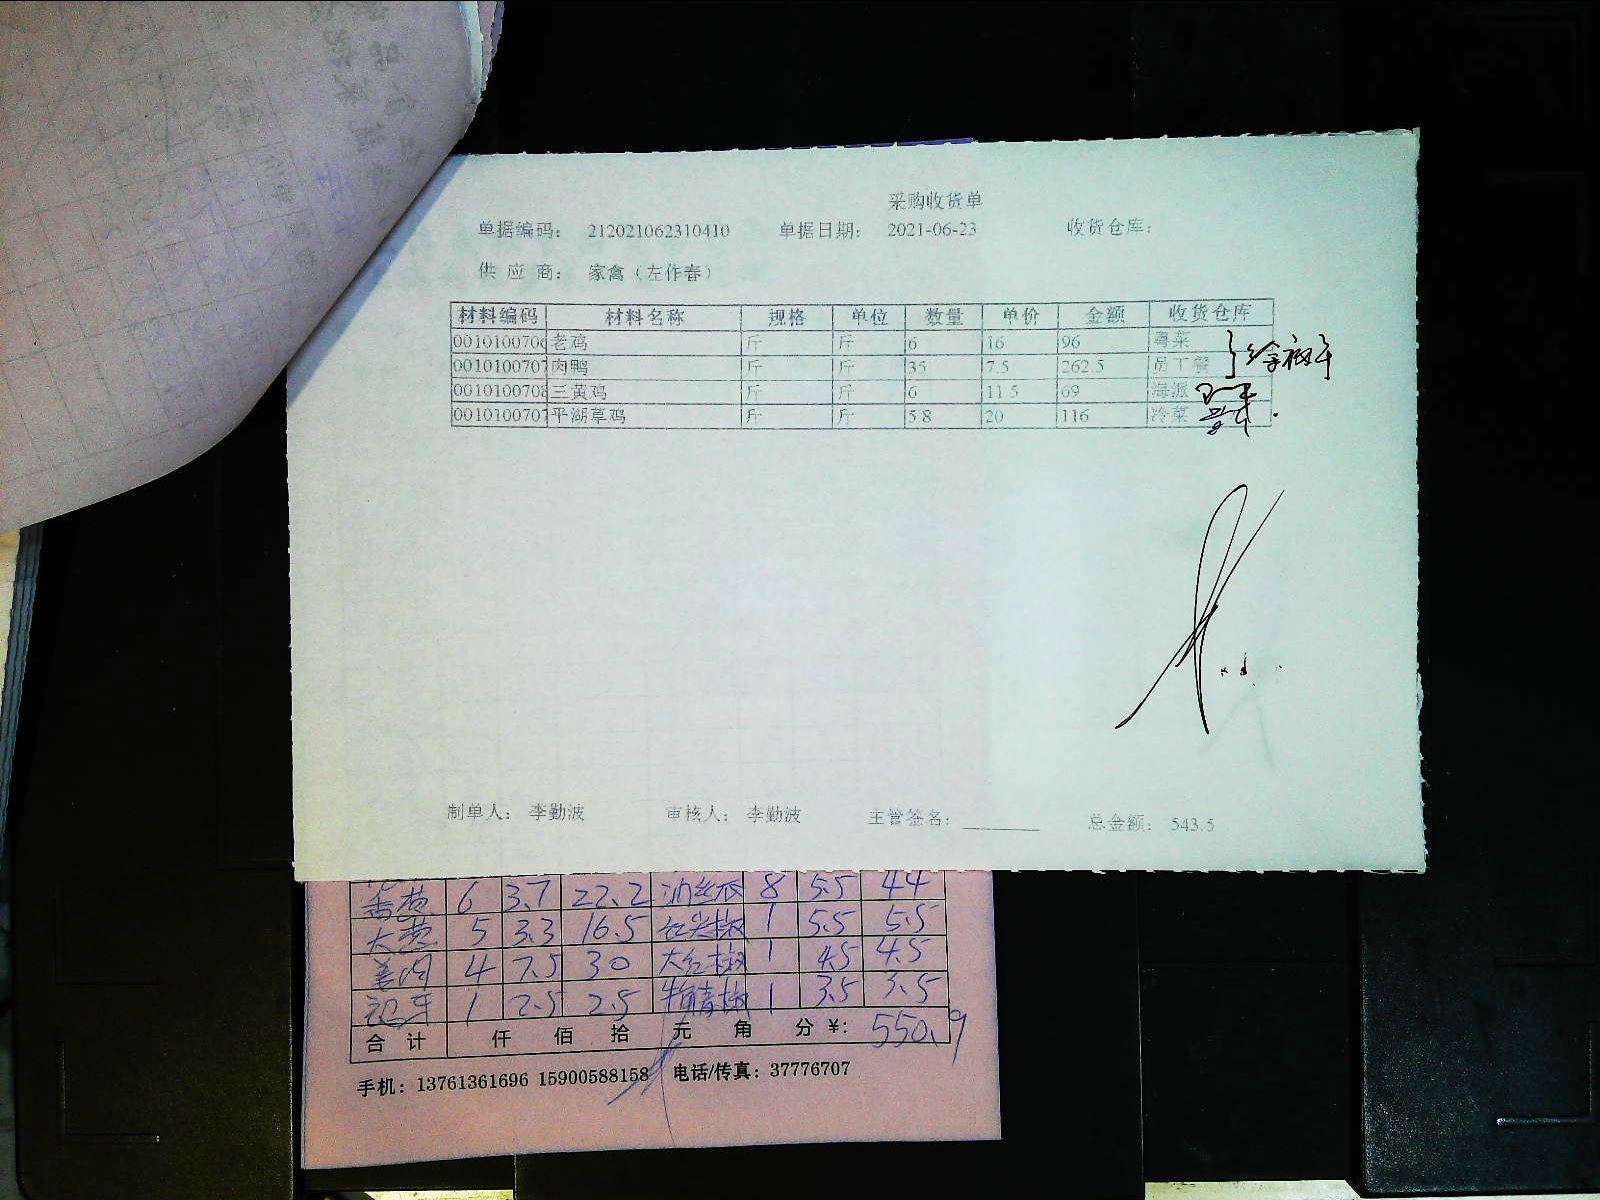 采购收货单
单据编码： 212021062310410 单据日期： 2021-06-23 收货仓库：
供 应 商： 家禽（左作春）
材料编码 材料名称 规格 单位 数量 单价 金额 收货仓库
0010100706 老鸡 斤 斤 6 16 96 粤菜
0010100707 肉鸭 斤 斤 35 7.5 262.5 员工餐
0010100708 三黄鸡 斤 斤 6 11.5 69 海派
0010100707 平湖草鸡 斤 斤 5.8 20 116 冷菜
制单人： 李勤波 审核人： 李勤波 主管签名： 总金额： 543.5
6 3.7 22.2 油丝瓜 8 5.5 44
大葱 5 3.3 16.5 红尖椒 1 5.5 5.5
姜肉 4 7.5 30 大红椒 1 4.5 4.5
1 2.5 2.5 牛角青椒 1 3.5 3.5
合 计 仟 佰 拾 元 角 分 ¥: 550.9
手机：13761361696 15900588158 电话/传真：37776707